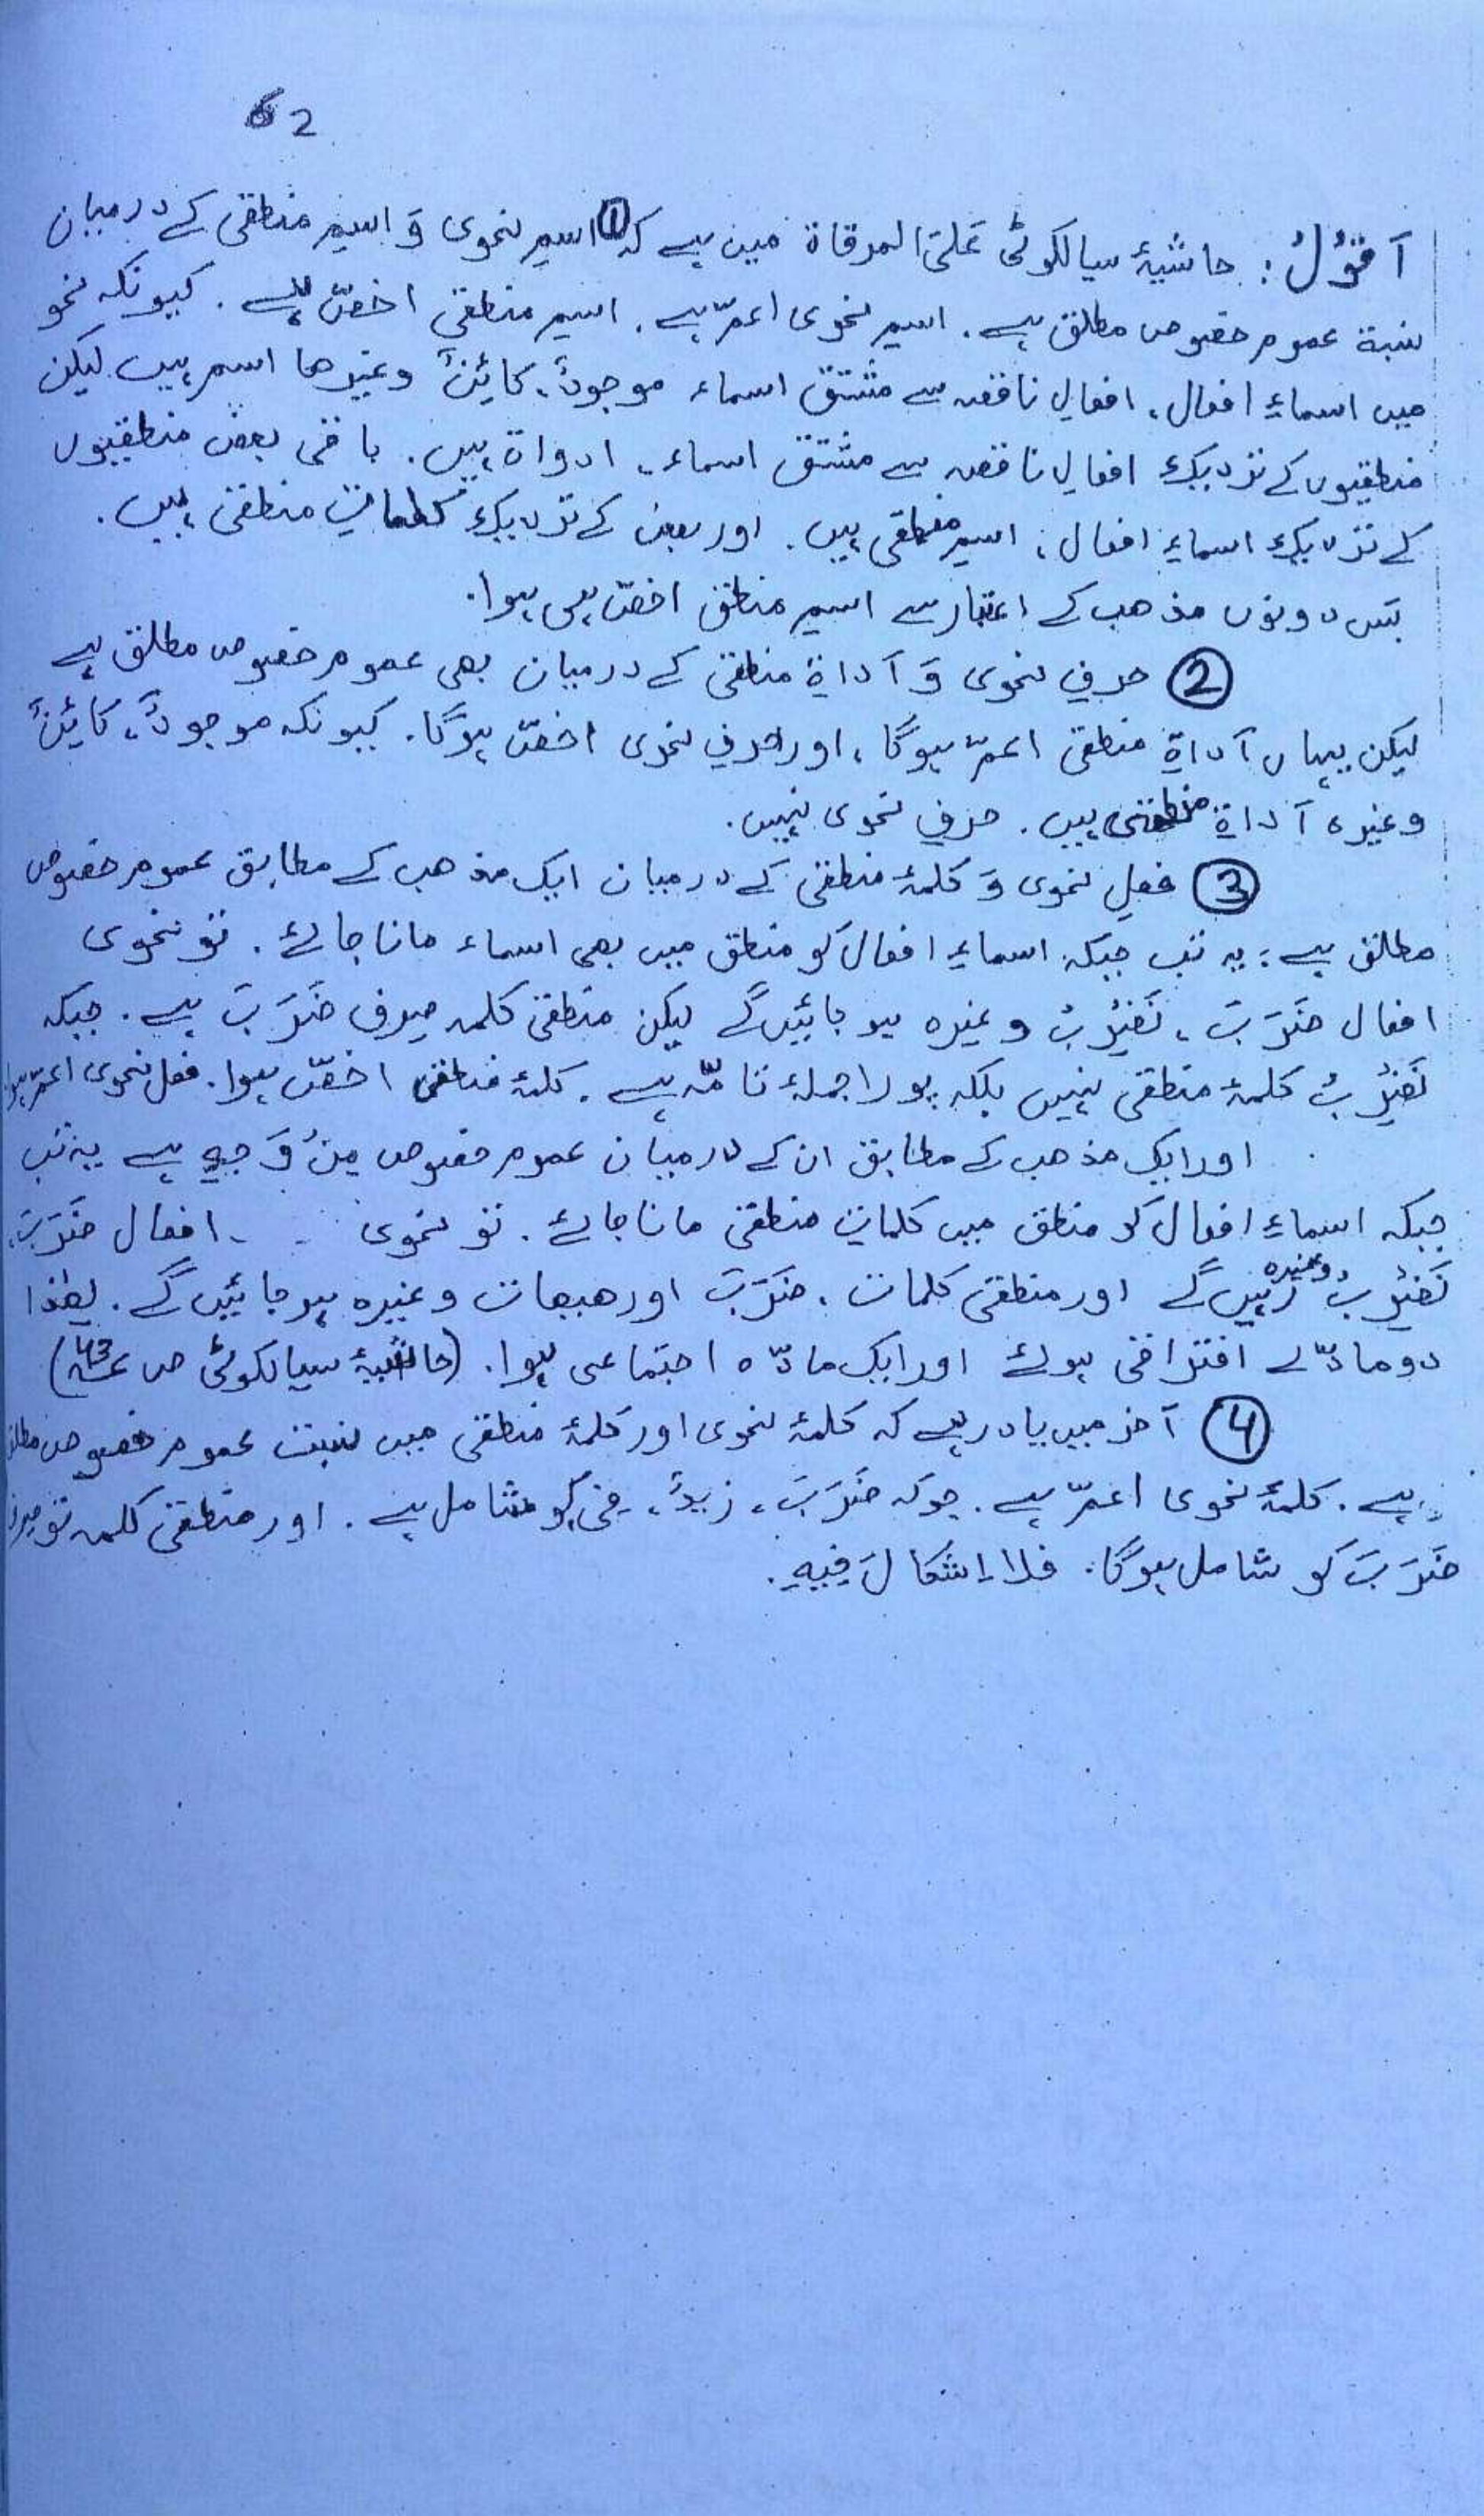 62
اَقُوْلُ: حاشیۂ سیالکوٹی عَلَی المرقاۃ میں ہے کہ ① اسمِ نحوی وَ اسمِ منطقی کے درمیان
نسبۃ عموم خصوص مطلق ہے. اسمِ نحوی اعمّ ہے. اسمِ منطقی اخصّ ہے. کیونکہ نحو
میں اسماءِ افعال، افعالِ ناقصہ سے مشتق اسماء موجودٌ، کائِنٌ وغیرھا اسم ہیں لیکن
منطقیوں کے نزدیک افعالِ ناقصہ سے مشتق اسماء، ادوات ہیں. باقی بعض منطقیوں
کے نزدیک اسماءِ افعال، اسمِ منطقی ہیں. اور بعض کے نزدیک کلماتِ منطقی ہیں.
بَس دونوں مذھب کے اعتبار سے اسمِ منطق اخصّ ہی ہوا.
② حرفِ نحوی وَ اَداۃِ منطقی کے درمیان بھی عموم خصوص مطلق ہے
لیکن یہاں اَداۃِ منطقی اعمّ ہوگا، اور حرفِ نحوی اخصّ ہوگا. کیونکہ موجودٌ، کائِنٌ
وغیرہ اَداۃِ منطقی ہیں. حرفِ نحوی نہیں.
③ فعلِ نحوی وَ کلمۂ منطقی کے درمیان ایک مذھب کے مطابق عموم خصوص
مطلق ہے: یہ تب جبکہ اسماءِ افعال کو منطق میں بھی اسماء مانا جائے. تو نحوی
افعال ضَرَبَ، نَضْرِبُ وغیرہ ہو جائیں گے لیکن منطقی کلمہ صرف ضَرَبَ ہے. جبکہ
نَضْرِبُ کلمۂ منطقی نہیں بلکہ پورا جملۂ تامّہ ہے. کلمۂ منطقی اخصّ ہوا. فعل نحوی اعمّ ہوا
اور ایک مذھب کے مطابق ان کے درمیان عموم خصوص مِنْ وَجہٍ ہے یہ تب
جبکہ اسماءِ افعال کو منطق میں کلماتِ منطقی مانا جائے. تو نحوی افعال ضَرَبَ،
نَضْرِبُ وغیرہ رہیں گے اور منطقی کلمات، ضَرَبَ اور ھیھات وغیرہ ہو جائیں گے. لھٰذا
دو مادّے افتراقی ہوئے اور ایک مادّہ اجتماعی ہوا. (حاشیۂ سیالکوٹی ص 43)
④ آخر میں یاد رہے کہ کلمۂ نحوی اور کلمۂ منطقی میں نسبت عموم خصوص مطلق
ہے. کلمۂ نحوی اعمّ ہے. جو کہ ضَرَبَ، زیدٌ، فِی کو شامل ہے. اور منطقی کلمہ تو صرف
ضَرَبَ کو شامل ہوگا. فلا اِشکالَ فِیہِ.